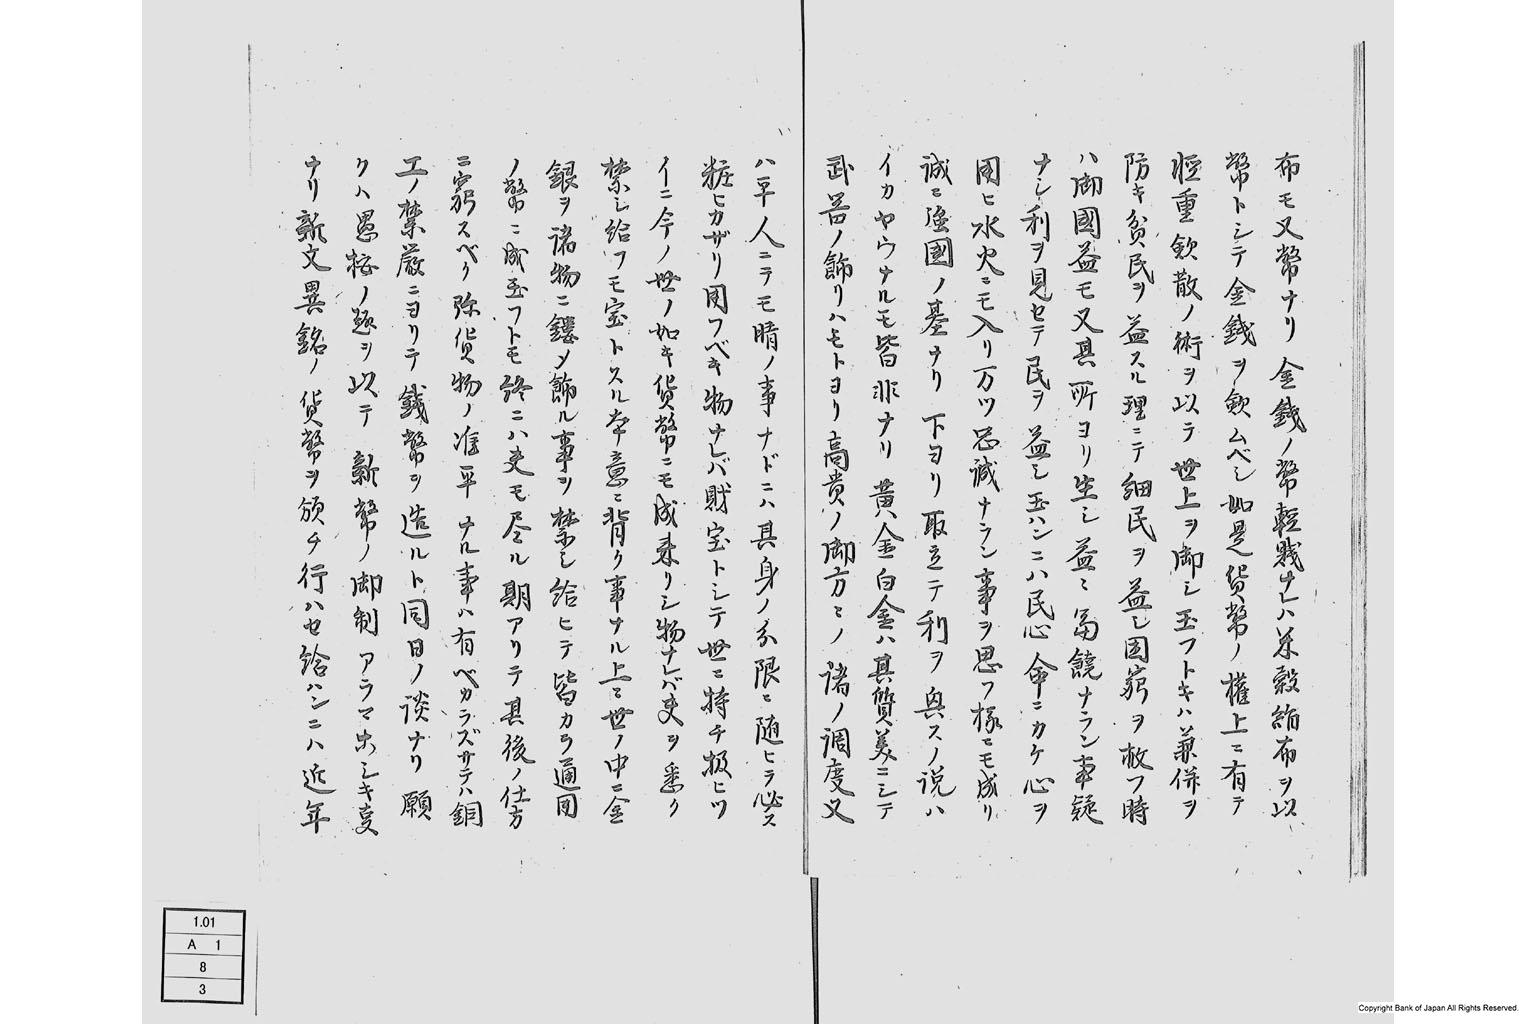 布モ又幣ナリ金銭ノ幣軽賎ナレハ米穀絹布ヲ以
幣トシテ金銭ヲ歛ムベシ如是貨幣ノ權上ニ有テ
軽重歛散ノ術ヲ以テ世上ヲ御シ玉フトキハ兼併ヲ
防キ貧民ヲ益スル理ニテ細民ヲ益シ困窮ヲ救フ時
ハ御國益モ又其所ヨリ生シ益ミ富饒ナラン事疑
ナシ利ヲ見セテ民ヲ益シ玉ハンニハ民心命ニカケ心ヲ
用ヒ水火ニモ入リ万ツ忠誠ナラン事ヲ思フ様ニモ成リ
誠ニ強國ノ基ナリ下ヨリ取立テ利ヲ興スノ説ハ
イカヤウナルモ皆非ナリ黄金白金ハ其質美ニシテ
武器ノ飾リハモトヨリ高貴ノ御方ミノ諸ノ調度又
ハ平人ニテモ晴ノ事ナドニハ其身ノ分限ニ随ヒラ必ス
粧ヒカザリ用フベキ物ナレバ財宝トシテ世ニ持チ扱ヒツ
イニ今ノ世ノ如キ貨幣ニモ成来リシ物ナレバ吏ヲ悉ク
禁シ給フモ宝トスル本意ニ背ク事ナル上ニ世ノ中ニ金
銀ヲ諸物ニ鏤メ飾ル事ヲ禁シ給ヒテ皆カラ通用
ノ幣ニ成玉フトモ終ニハ吏モ尽ル期アリテ其後ノ仕方
ニ窮スベク弥貨物ノ准平ナル事ハ有ベカラズサテハ銅
工ノ禁厳ニヨリテ銭幣ヲ造ルト同日ノ談ナリ願
クハ愚按ノ趣ヲ以テ新幣ノ御制アラマホシキ叓
ナリ新文異銘ノ貨幣ヲ頒チ行ハセ給ハンニハ近年
1.01
A 1
8
3
Copyright Bank of Japan All Rights Reserved.